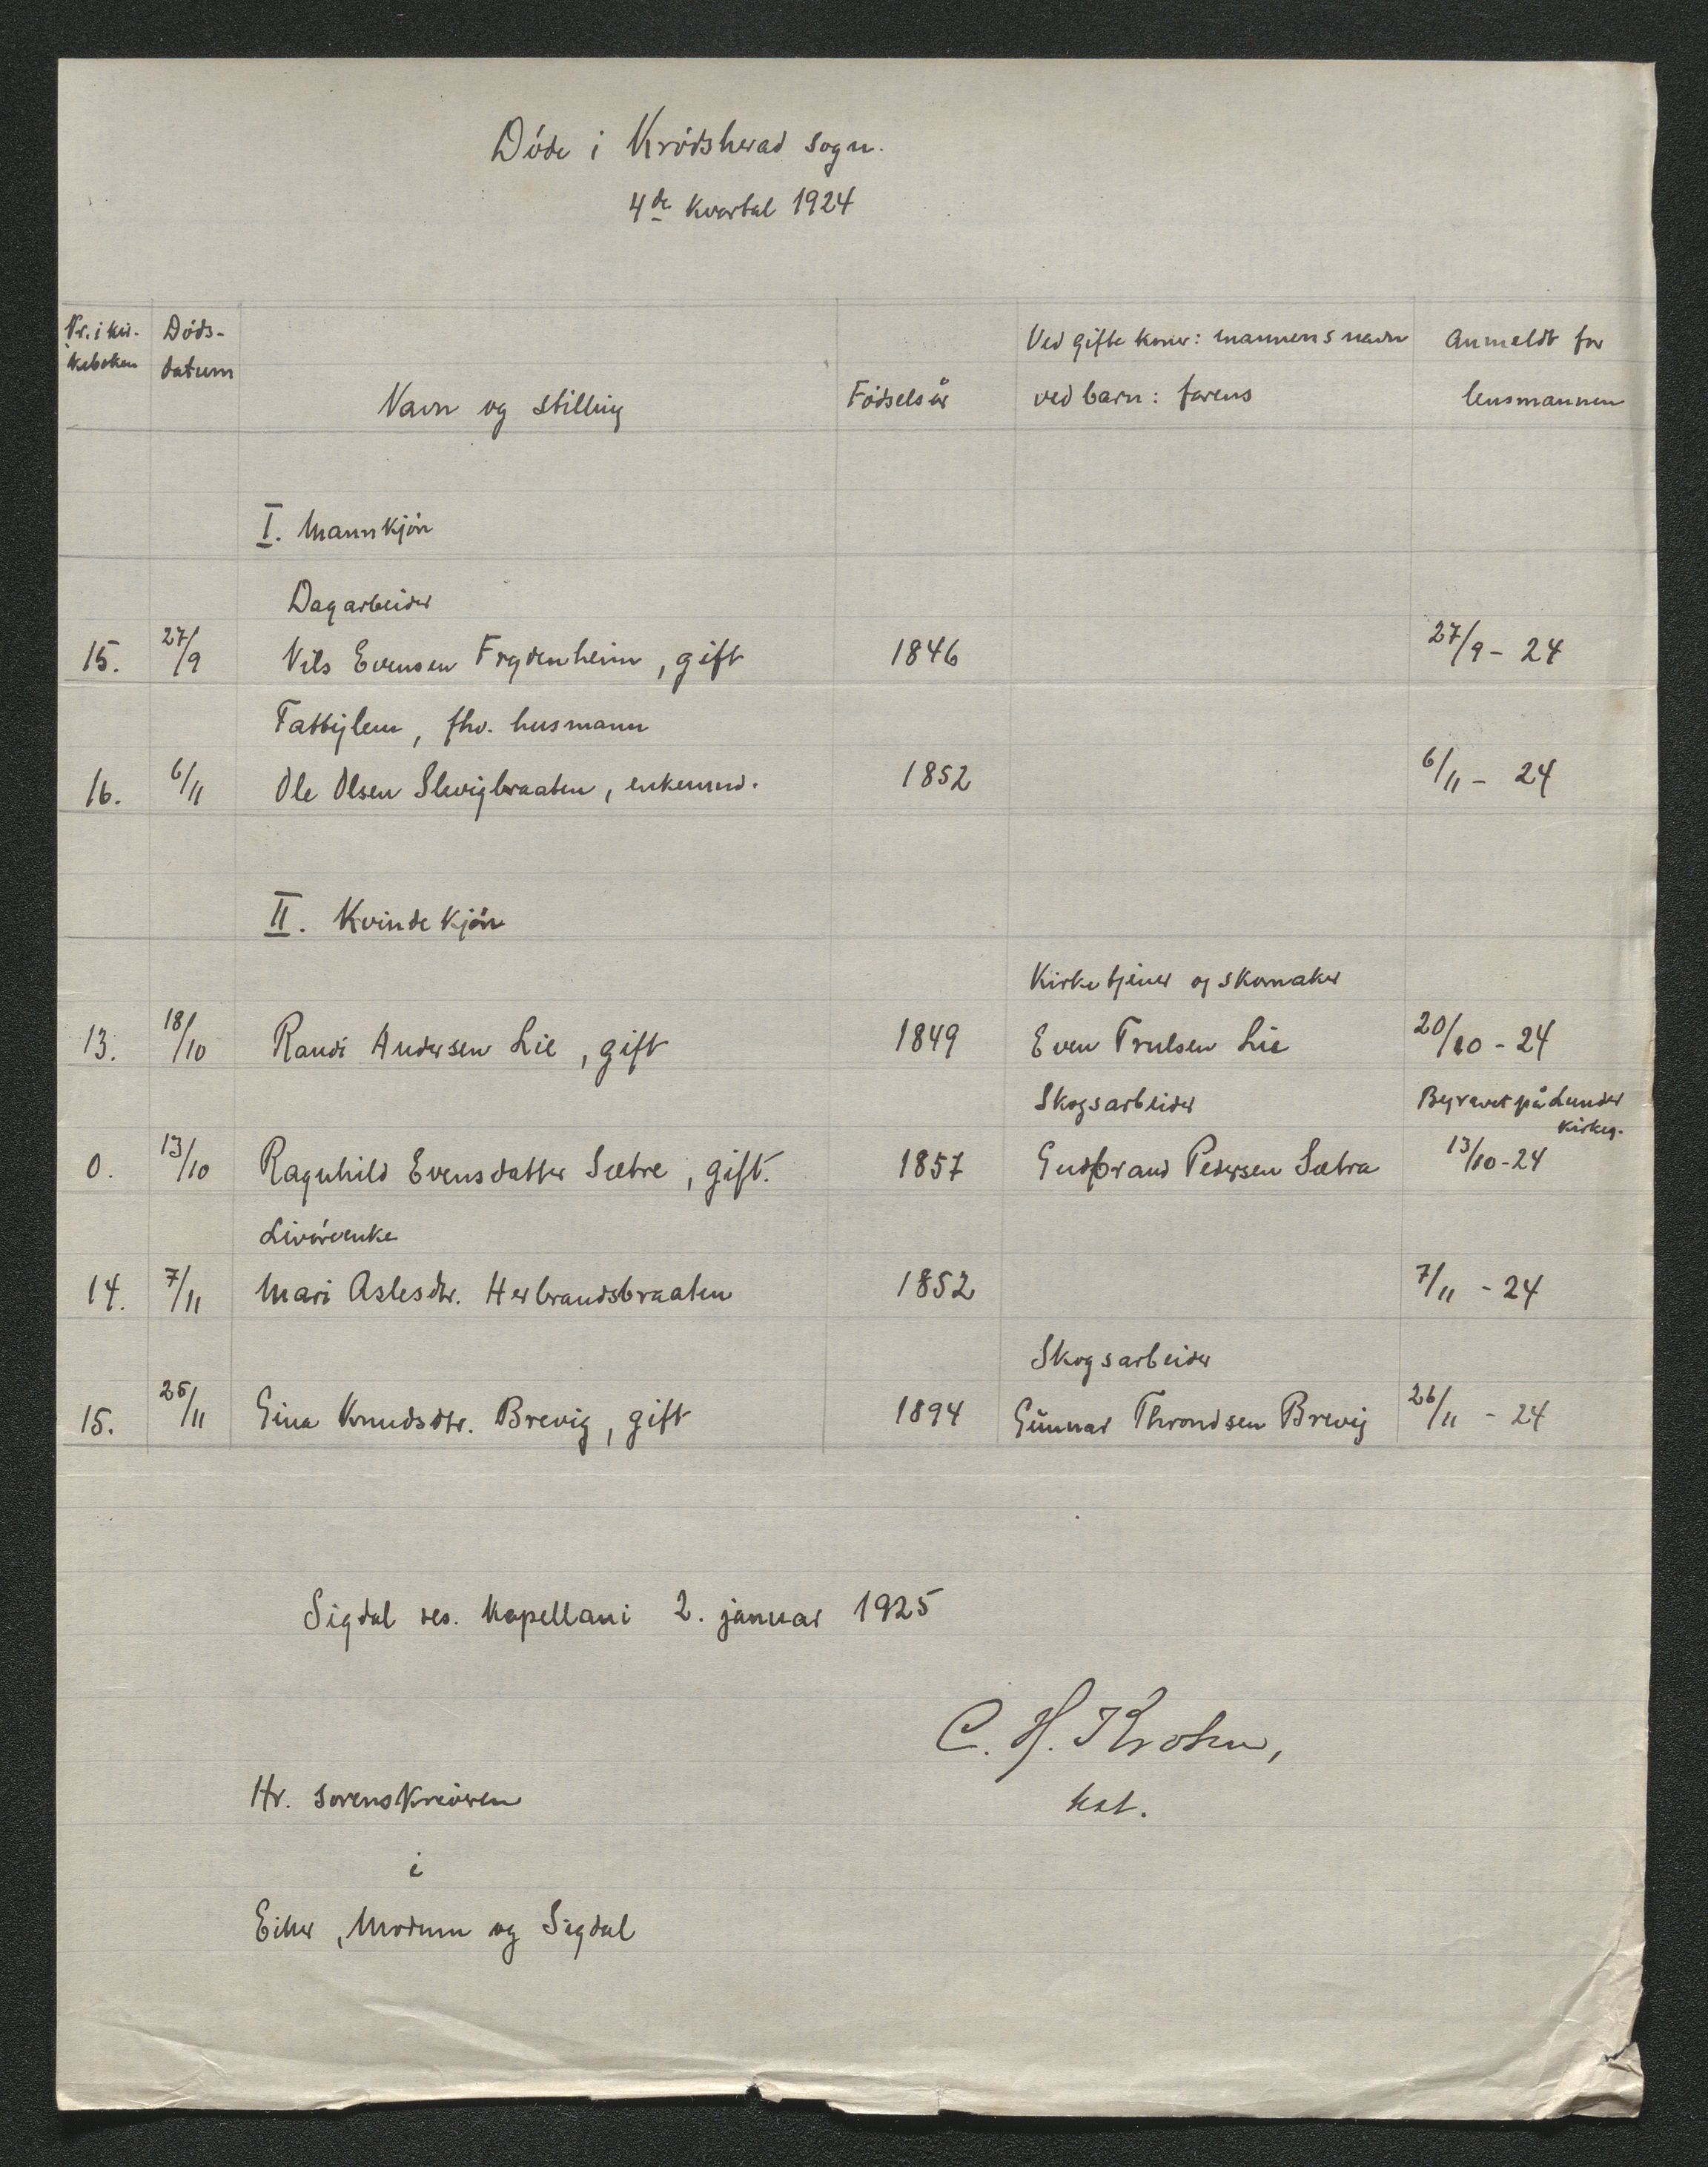 Døde i Krødsherad sogn.
4de kvartal 1924
Nr. i kir- Døds- Ved gifte koner: mannens navn Anmeldt for
keboken datum
Navn og stilling Fødselsår ved barn: farens lensmannen
I. Mannkjøn
Dagarbeider
15. 27/9 Nils Evensen Frydenheim, gift 1846 27/9 - 24
Fattiglem, fhv. husmann
16. 6/11 Ole Olsen Slevigbraaten, enkemnd. 1852 6/11 - 24
II. Kvindekjøn
Kirketjener og skomaker
13. 18/10 Randi Andersen Lie, gift 1849 Even Trulsen Lie 20/10 - 24
Skogsarbeider Begravet på Lunder
kirkeg.
0. 13/10 Ragnhild Evensdatter Sætre, gift. 1857 Gudbrand Pedersen Sætra 13/10 - 24
Livørenke
14. 7/11 Mari Aslesdtr. Herbrandsbraaten 1852 7/11 - 24
Skogsarbeider
15. 25/11 Gina Knudsdtr. Brevig, gift 1894 Gunnar Throndsen Brevig 26/11 - 24
Sigdal res. kapellani 2. januar 1925
C. H. Krohn,
kst.
Hr. sorenskriveren
i
Eiker, Modum og Sigdal